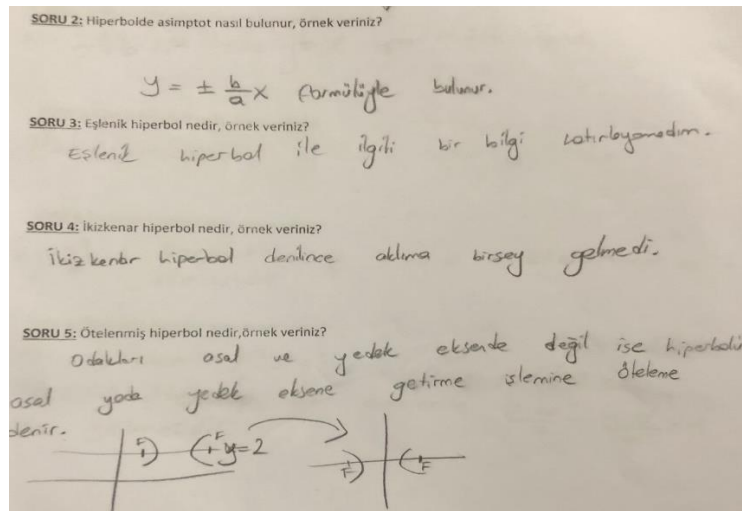 SORU 2: Hiperbolde asimptot nasıl bulunur, örnek veriniz?
y = ± b/a x formülüyle bulunur.
SORU 3: Eşlenik hiperbol nedir, örnek veriniz?
Eşlenik hiperbol ile ilgili bir bilgi hatırlayamadım.
SORU 4: İkizkenar hiperbol nedir, örnek veriniz?
İkizkenar hiperbol denilince aklıma birşey gelmedi.
SORU 5: Ötelenmiş hiperbol nedir,örnek veriniz?
Odakları asal ve yedek eksende değil ise hiperbolü
asal yada yedek eksene getirme işlemine öteleme
denir.
F F y=2
F F